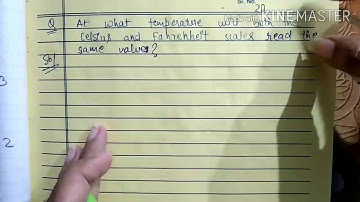 Made with
KINEMASTER
Q At what temperature will both the
Celsius and Fahrenheit scales read the
same value?
Sol
3
2